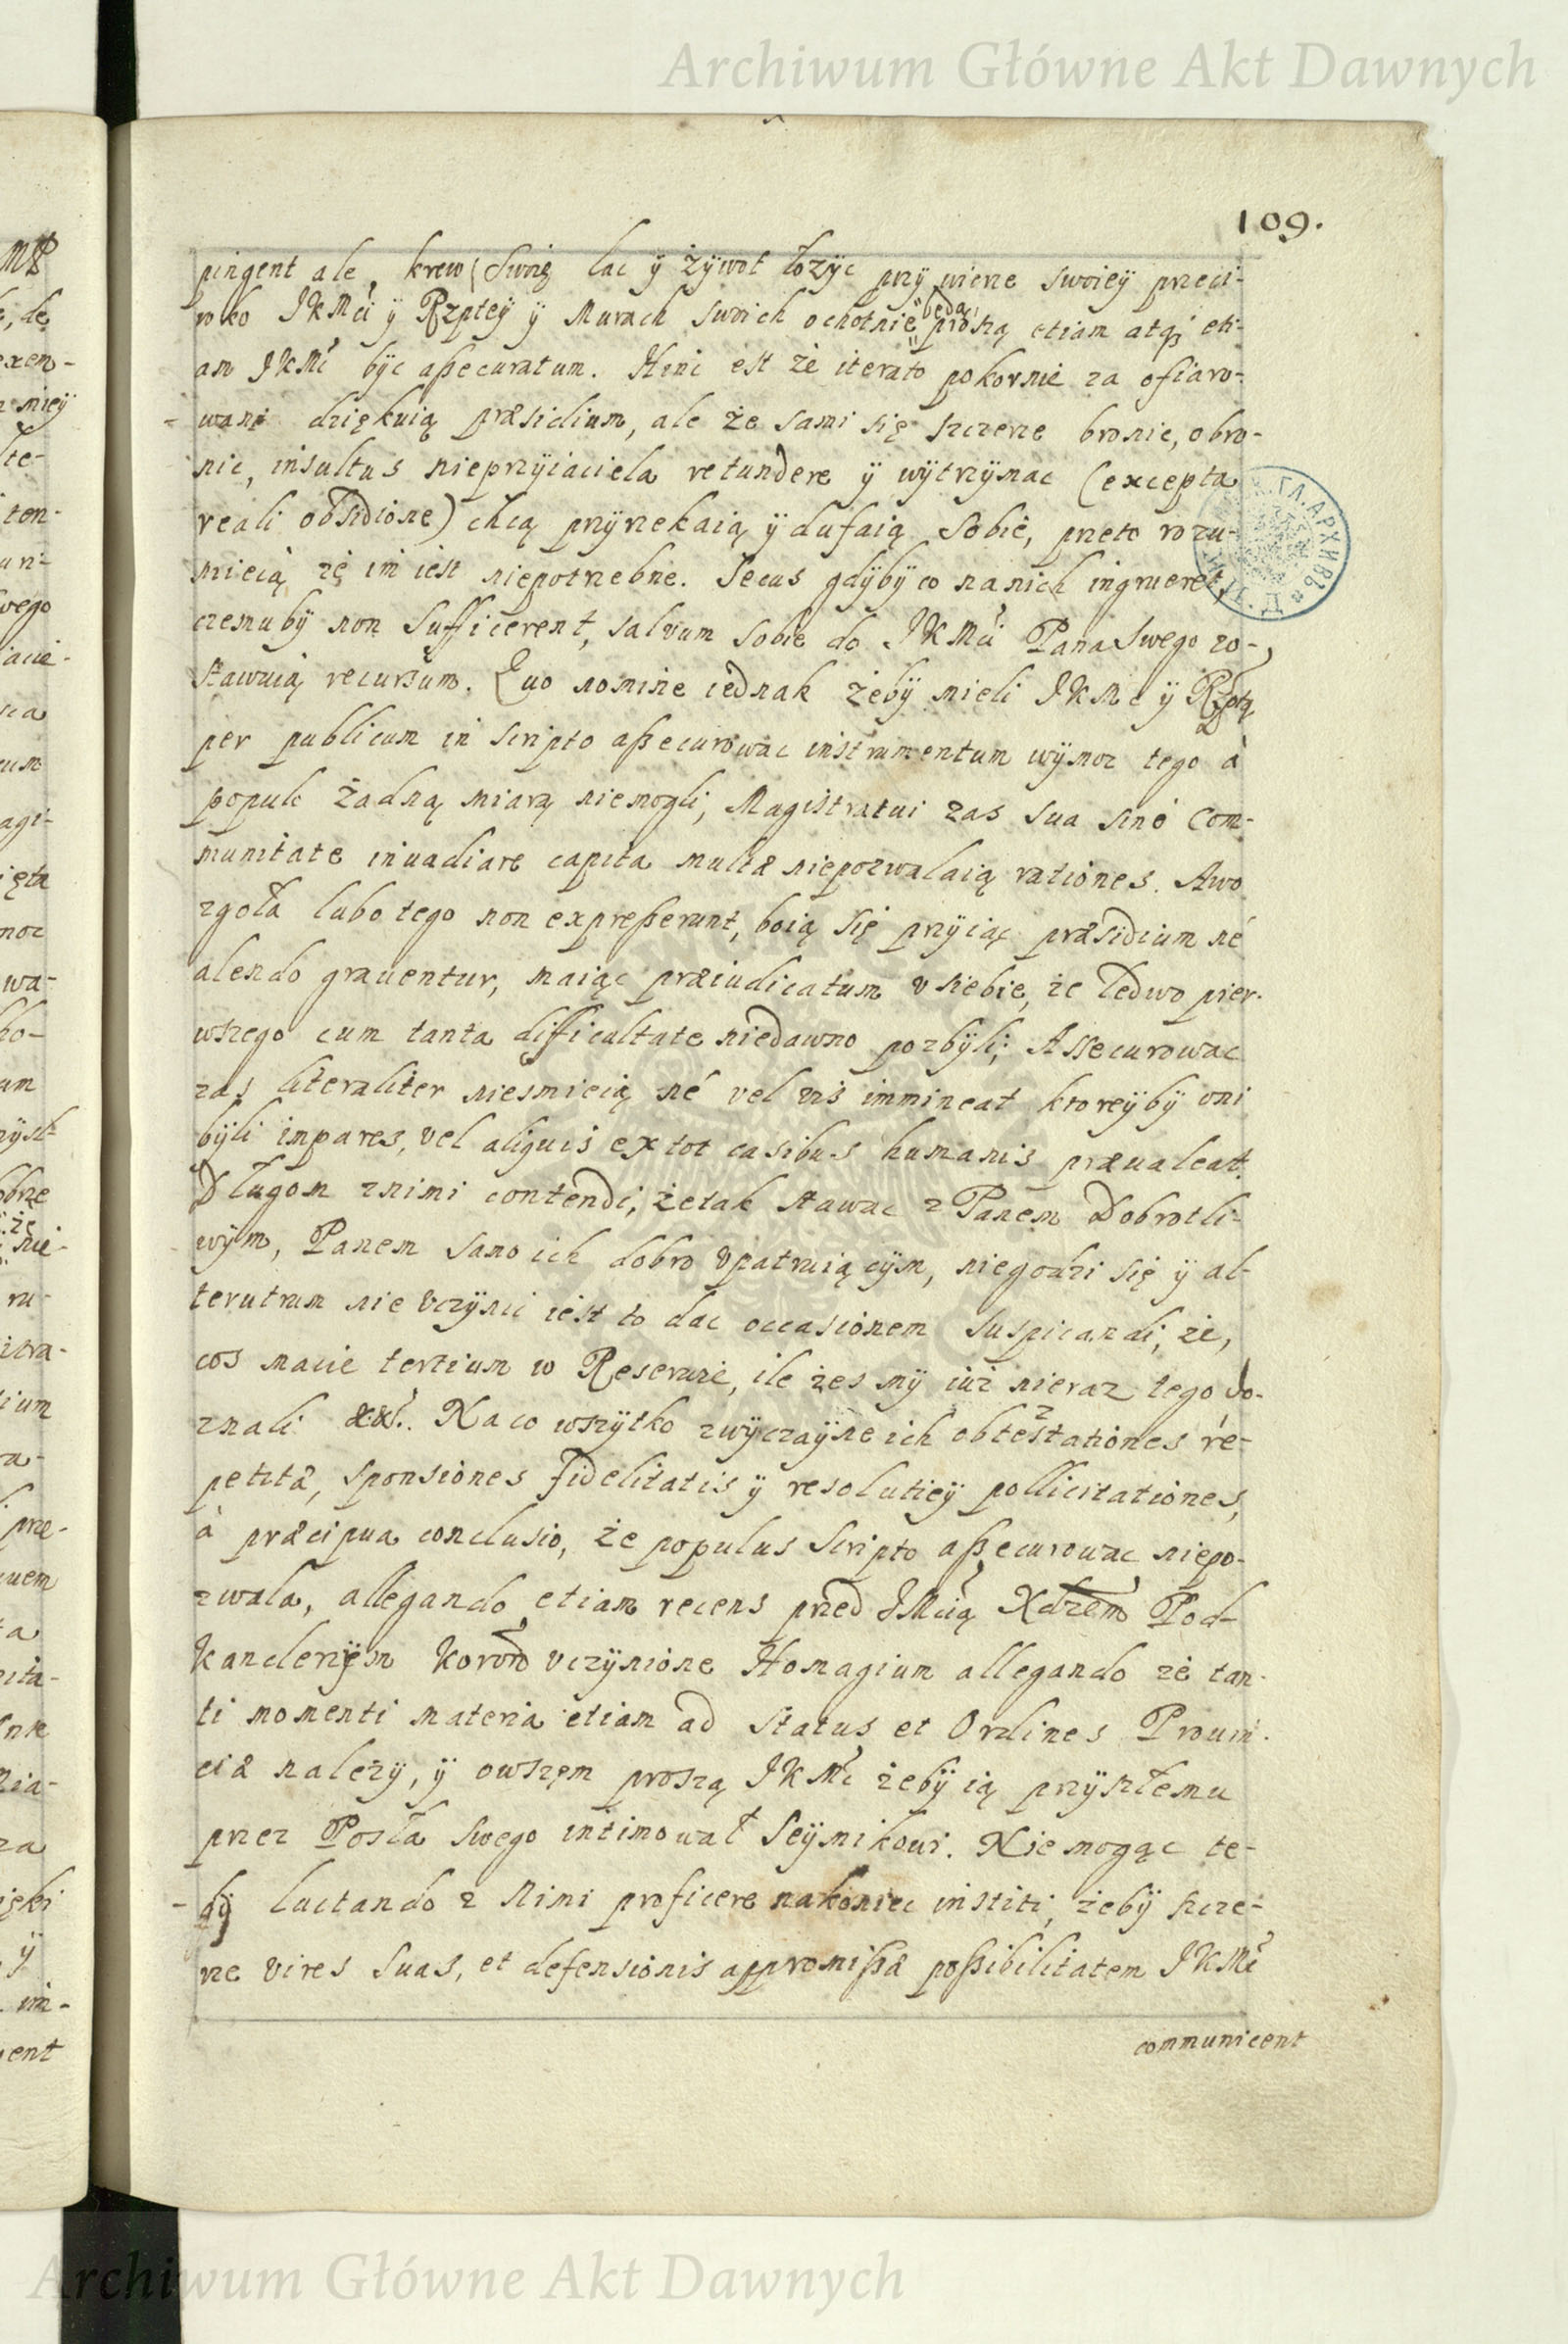 Archiwum Główne Akt Dawnych
109.
pingent ale, krew swoię lac ÿ żÿwot łozÿc przÿ wierze swoieÿ przeci-
wko JKMci ÿ Rzpteÿ ÿ Murach swoich ochotnie będą
proszą etiam atq; eti-
am JKMć bÿc aßecuratum. Hinc est że iterato pokornie za ofiaro-
wane dziękuią præsidium, ale że sami się szczerze bronic, obro-
nic, insultus nieprzÿiaciela retundere ÿ wÿtrzÿmac (excepta
reali obsidione) chcą przÿrzekaią ÿ dufaią sobie, przeto rozu-
mieią żę im iest niepotrzebne. Secus gdÿbÿ co na nich ingrueret,
czemubÿ non sufficerent, salvum sobie do JKMci Pana swego zo-
stawuią recursum. Quo nomine iednak żebÿ mieli JKMć ÿ Rzptą
per publicum in scripto aßecurowac instrumentum wÿmoz tego à
populo żadną miarą niemogli, Magistratui zas sua sine Com-
munitate invadiare capita multæ niepozwalaią rationes. Awo
zgoła lubo tego non expreßerunt, boią się przÿiąc præsidium né
alendo graventur, maiąc præiudicatum v siebie, że ledwo pier-
wszego cum tanta difficultate niedawno pozbÿli; Assecurowac
zas literaliter niesmieią né vel vis immineat ktoreÿbÿ oni
bÿli impares, vel aliquis ex tot casibus humanis prævaleat.
Długom znimi contendi, żetak stawac z Panem Dobrotli-
wÿm, Panem samo ich dobro vpatruiącÿm, niegodzi się ÿ al-
terutrum nie vczÿnic iest to dac occasionem suspicandi, że,
cos macie tertium w Reserwie, ile żesmÿ iuż nieraz tego do-
znali &&. Na co wszÿtko zwÿczaÿne ich obtestationes re-
petitæ, sponsiones fidelitatis ÿ resolutieÿ pollicitationes,
à præcipua conclusio, że populus scripto aßecurowac niepo-
zwala, allegando etiam recens przed JMcią Xdzem Pod-
kanclerzÿm Koron vczÿnione Homagium allegando że tan-
ti momenti materia etiam ad Status et Ordines Provin-
ciæ należÿ, ÿ owszem proszą JKMć żebÿ ią przÿszłemu
przez Posła swego intimował Seÿmikowi. Nie mogąc te-
dÿ luctando z nimi proficere nakoniec institi, żebÿ szcze-
rze vires suas, et defensionis appromißæ poßibilitatem JKMć
communicent
Archiwum Główne Akt Dawnych